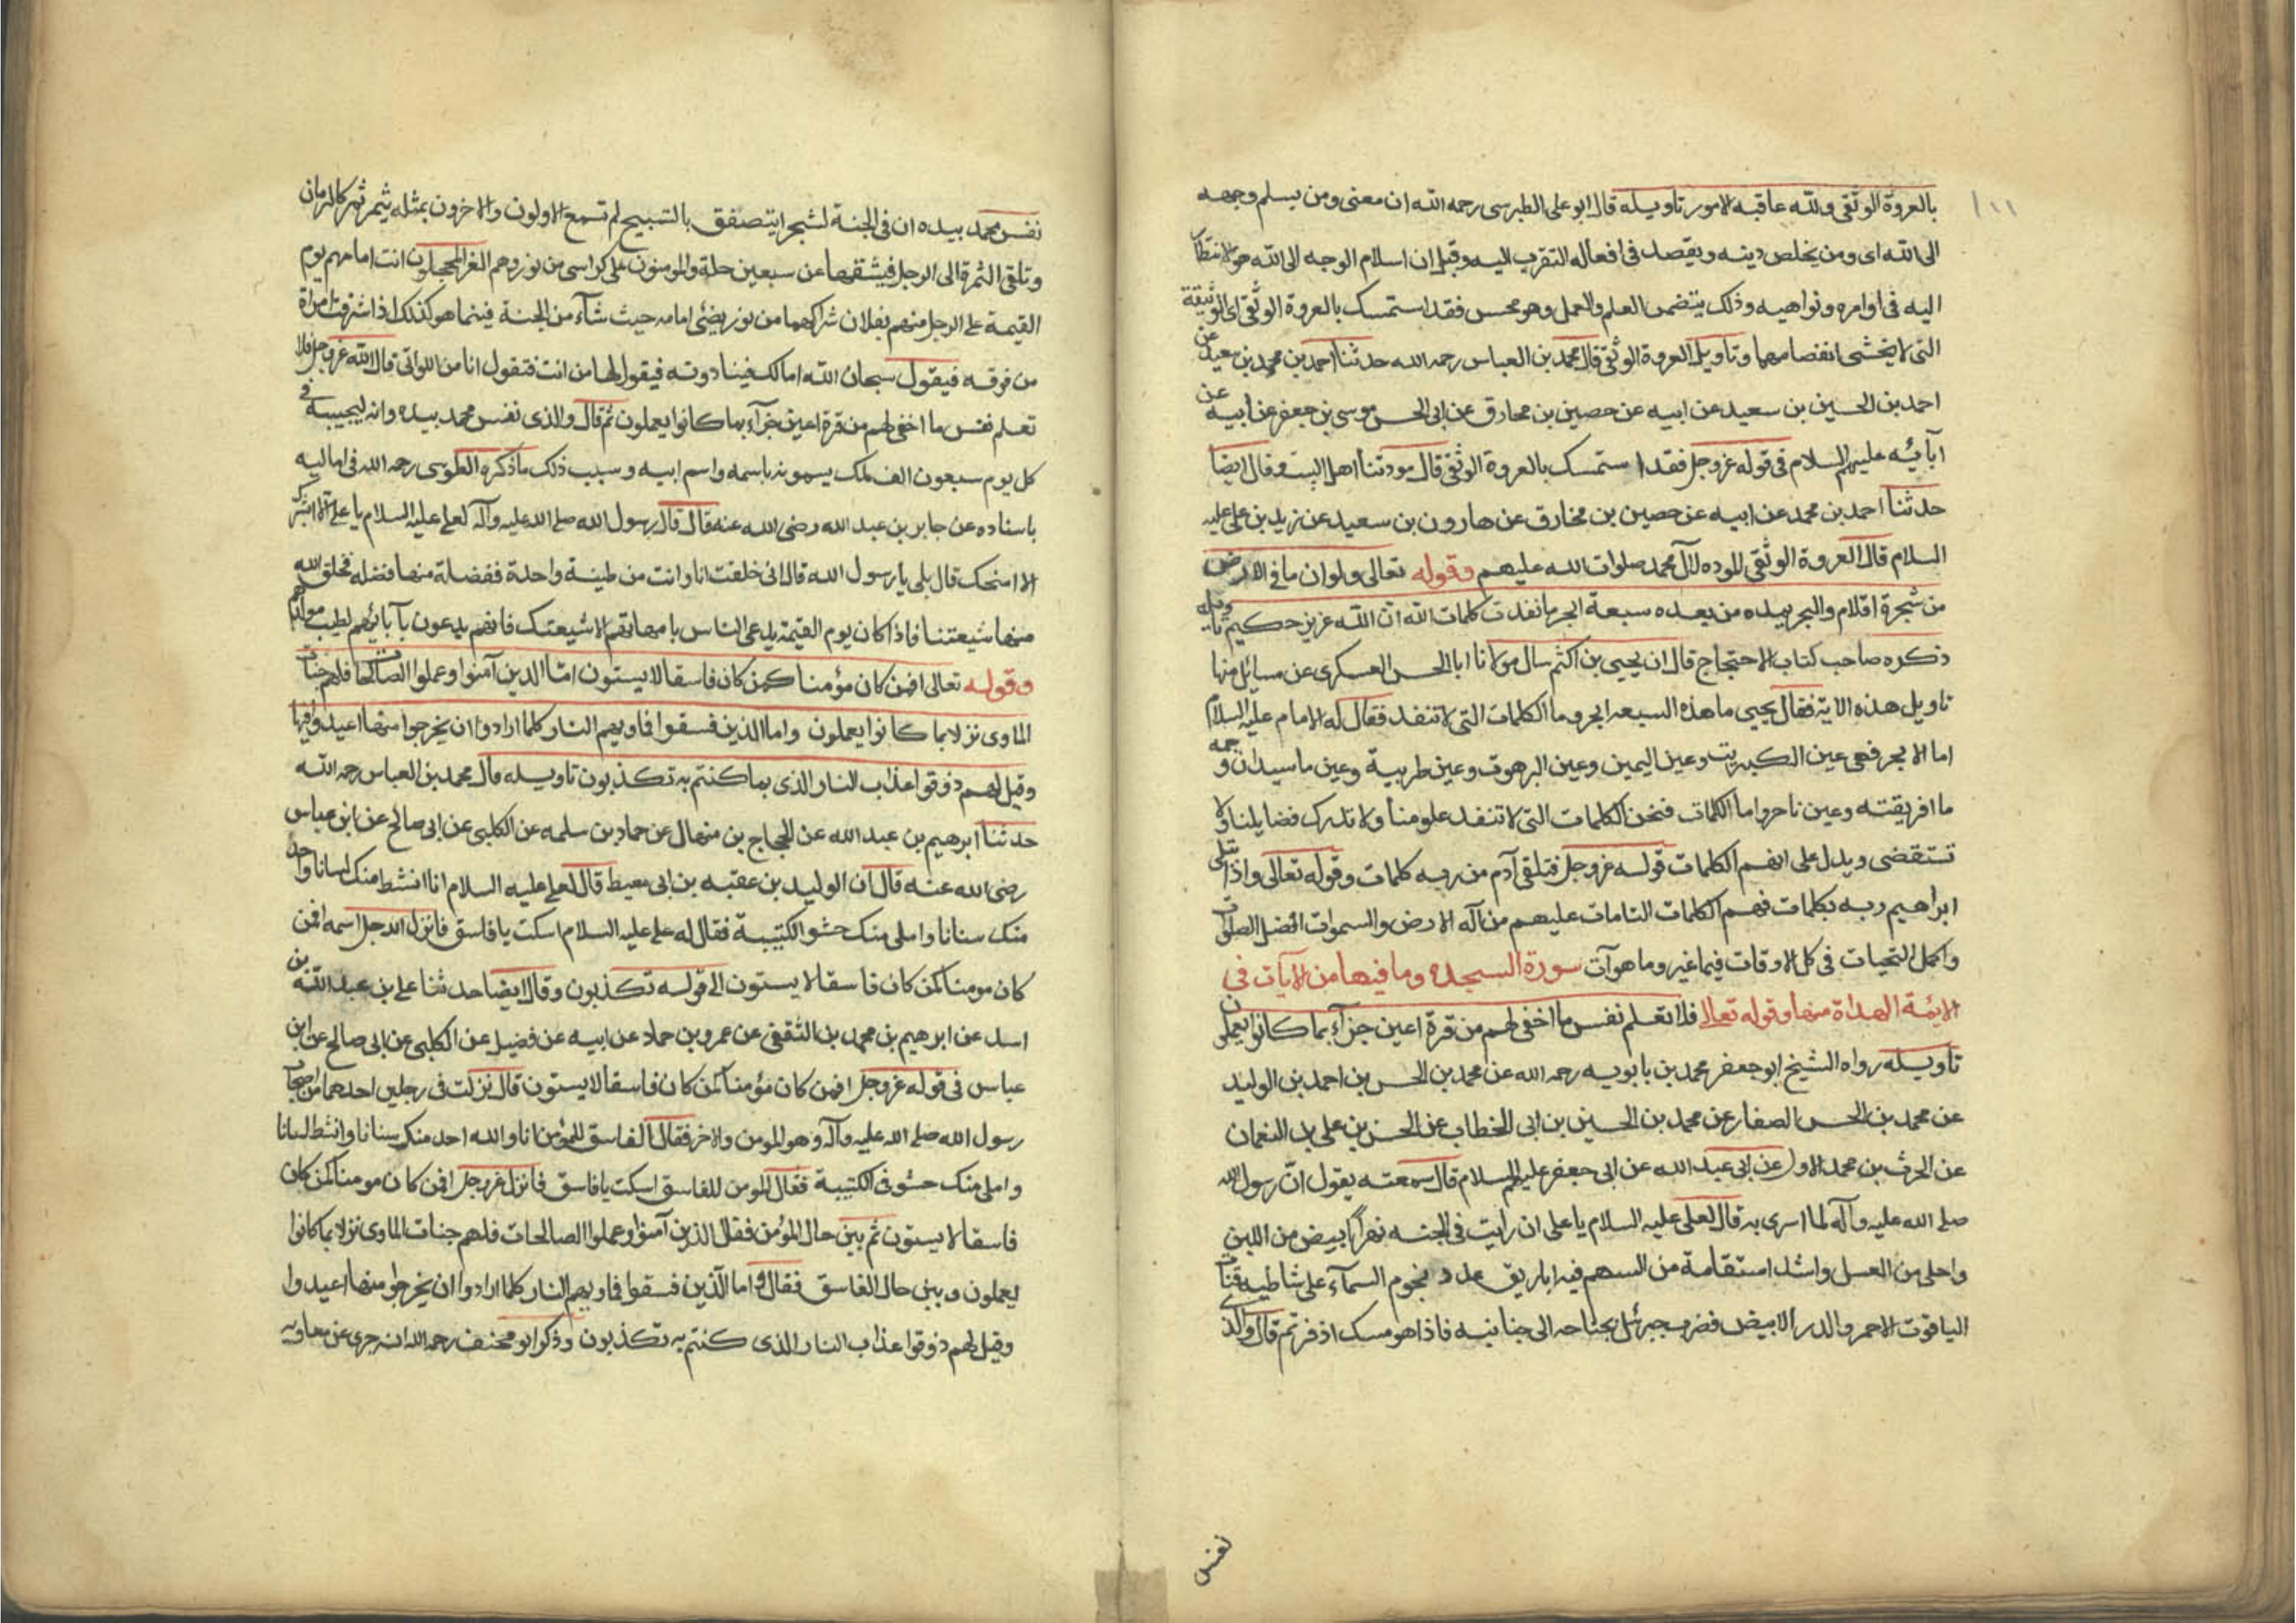 بالعروة الوثقى ولله عاقبه الامور تاويله قال ابو على الطبرسى رحمه الله ان معنى ومن يسلم وجهه
الى الله اى ومن يخلص دينه ويقصد فى افعاله التقرب اليه وقيل ان اسلام الوجه الى الله هو الانقياد
اليه فى اوامره ونواهيه وذلك يتضمن العلم والعمل وهو محسن فقد استمسك بالعروة الوثقى اى الوثيقة
التى لا يخشى انفصامها وتاويل العروة الوثقى قال محمد بن العباس رحمه الله حدثنا احمد بن محمد بن سعيد عن
احمد بن الحسين بن سعيد عن ابيه عن حصين بن مخارق عن ابى الحسن موسى بن جعفر عن ابيه عن
آبائه عليهم السلام فى قوله عز وجل فقد استمسك بالعروة الوثقى قال مودتنا اهل البيت وقال ايضا
حدثنا احمد بن محمد عن ابيه عن حصين بن مخارق عن هارون بن سعيد عن زيد بن على عليه
السلام قال العروة الوثقى الموده لآل محمد صلوات الله عليهم وقوله تعالى ولو ان ما فى الارض
من شجرة اقلام والبحر يمده من بعده سبعة ابحر ما نفدت كلمات الله ان الله عزيز حكيم تاويله
ذكره صاحب كتاب الاحتجاج قال ان يحيى بن اكثم سال مولانا ابا الحسن العسكرى عن مسائل منها
تاويل هذه الاية فقال يحيى ما هذه السبعه ابحر وما الكلمات التى لا تنفد فقال له الامام عليه السلام
اما الابحر فهى عين الكبريت وعين اليمين وعين البرهوت وعين طبرية وعين ماسيدان وجمه
ما افريقته وعين ناحروا ما الكلمات فنحن الكلمات التى لا تنفد علومنا ولا تدرك فضايلنا ولا
تستقضى ويدل على انهم الكلمات قوله عز وجل فتلقى آدم من ربه كلمات وقوله تعالى واذ ابتلى
ابراهيم ربه بكلمات فهم الكلمات التامات عليهم من آله الارض والسموات افضل الصلوات
واكمل التحيات فى كل الاوقات فيما غبر وما هو آت سورة السجده وما فيها من الآيات فى
الائمة الهداة منها وقوله تعالى فلا تعلم نفس ما اخفى لهم من قرة اعين جزآء بما كانوا يعملون
تاويله رواه الشيخ ابو جعفر محمد بن بابويه رحمه الله عن محمد بن الحسن بن احمد بن الوليد
عن محمد بن الحسن الصفار عن محمد بن الحسين بن ابى الخطاب عن الحسن بن على بن النعمان
عن الحرث بن محمد الاول عن ابى عبد الله عن ابى جعفر عليهم السلام قال سمعته يقول ان رسول الله
صلى الله عليه وآله لما اسرى به قال لعلى عليه السلام يا على ان رأيت فى الجنه نهرا ابيض من اللبن
واحلى من العسل واشد استقامة من السهم فيه اباريق عدد نجوم السمآء على شاطيه قباب
الياقوت الاحمر والدر الابيض فضرب جبرئيل بجناحه الى جنابيه فاذا هو مسك اذفر ثم قال والذى
نفس
نفس محمد بيده ان فى الجنة لشجرا يتصفق بالتسبيح لم تسمع الاولون والاخرون بمثله يثمر ثمر كالرمان
وتلقى الثمرة الى الرجل فيشقها عن سبعين حلة والمومنون على كراسى من نور وهم الغر المحجلون انت امامهم يوم
القيمة على الرجل منهم نعلان شراكهما من نور يضئ امامه حيث شآء من الجنة فبينما هو كذلك اذ اشرفت امراة
من فوقه فيقول سبحان الله اما لك فينا دوته فيقول لها من انت فتقول انا من اللواتى قال الله عز وجل فلا
تعلم نفس ما اخفى لهم من قرة اعين جزآء بما كانوا يعملون ثم قال والذى نفس محمد بيده وانه ليجيبه فى
كل يوم سبعون الف ملك يسمونه باسمه واسم ابيه وسبب ذلك ما ذكره الطوسى رحمه الله فى اماليه
باسناده عن جابر بن عبد الله رضى الله عنه قال قال رسول الله صلى الله عليه وآله لعلى عليه السلام يا على الا ابشرك
الا امنحك قال بلى يا رسول الله قال انى خلقت انا وانت من طينة واحدة ففضلة منها فضله فخلق الله
منها شيعتنا فاذا كان يوم القيمة يدعى الناس بامهاتهم الا شيعتك فانهم يدعون بآبائهم لطيب مولدهم
وقوله تعالى افمن كان مؤمنا كمن كان فاسقا لا يستون امّا الذين آمنوا وعملوا الصالحات فلهم جنات
الماوى نزلا بما كانوا يعملون واما الذين فسقوا فماويهم النار كلما ارادوا ان يخرجوا منها اعيدوا فيها
وقيل لهم ذوقوا عذاب النار الذى بما كنتم به تكذبون تاويله قال محمد بن العباس رحمه الله
حدثنا ابرهيم بن عبد الله عن الحجاج بن منهال عن حماد بن سلمه عن الكلبى عن ابى صالح عن ابن عباس
رضى الله عنه قال ان الوليد بن عقبه بن ابى معيط قال لعلى عليه السلام انا انشط منك لسانا واحد
منك سنانا واملى منك حشو الكتيبة فقال له على عليه السلام اسكت يا فاسق فانزل الله جل اسمه افمن
كان مومنا كمن كان فاسقا لا يستون الى قوله تكذبون وقال ايضا حدثنا على بن عبد الله بن
اسد عن ابرهيم بن محمد بن الثقفى عن عمرو بن حماد عن ابيه عن فضيل عن الكلبى عن ابى صالح عن ابن
عباس فى قوله عز وجل افمن كان مؤمنا كمن كان فاسقا لا يستون قال نزلت فى رجلين احدهما من اصحاب
رسول الله صلى الله عليه وآله وهو المومن والاخر فقال الفاسق للمؤمن انا والله احد منك سنانا وانشط لسانا
واملى منك حشو فى الكتيبة فقال المومن للفاسق اسكت يا فاسق فانزل عز وجل افمن كان مومنا كمن كان
فاسقا لا يستون ثم بين حال المؤمن فقال الذين آمنوا وعملوا الصالحات فلهم جنات الماوى نزلا بما كانوا
يعملون وبين حال الفاسق فقال واما الّذين فسقوا فماويهم النار كلما ارادوا ان يخرجوا منها اعيدوا
وقيل لهم ذوقوا عذاب النار الذى كنتم به تكذبون وذكر ابو مخنف رحمه الله انه جرى عن معاويه